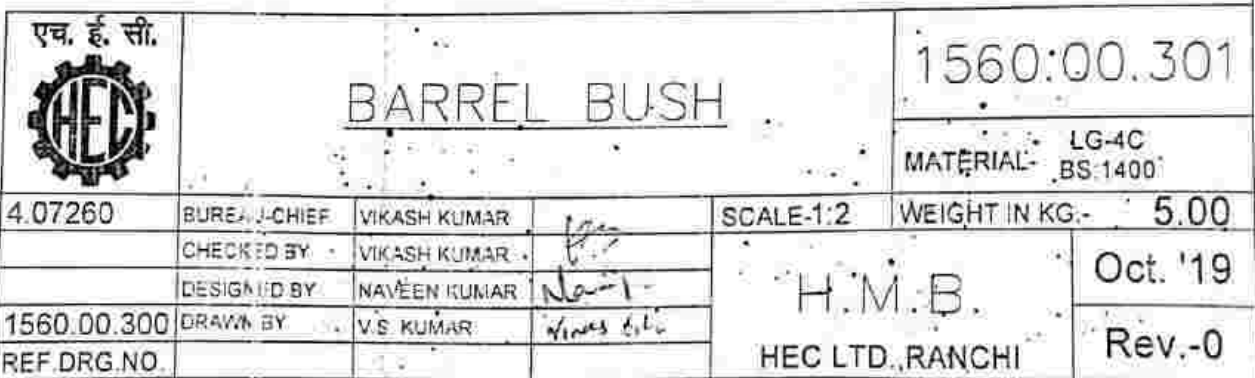 एच. ई. सी.
HEC
BARREL BUSH
1560:00.301
MATERIAL- LG-4C
BS:1400
4.07260 BUREAU-CHIEF VIKASH KUMAR SCALE-1:2 WEIGHT IN KG.- 5.00
CHECKED BY VIKASH KUMAR
DESIGNED BY NAVEEN KUMAR
H.M.B. Oct. '19
1560.00.300 DRAWN BY V.S. KUMAR
REF.DRG.NO. HEC LTD.,RANCHI Rev.-0